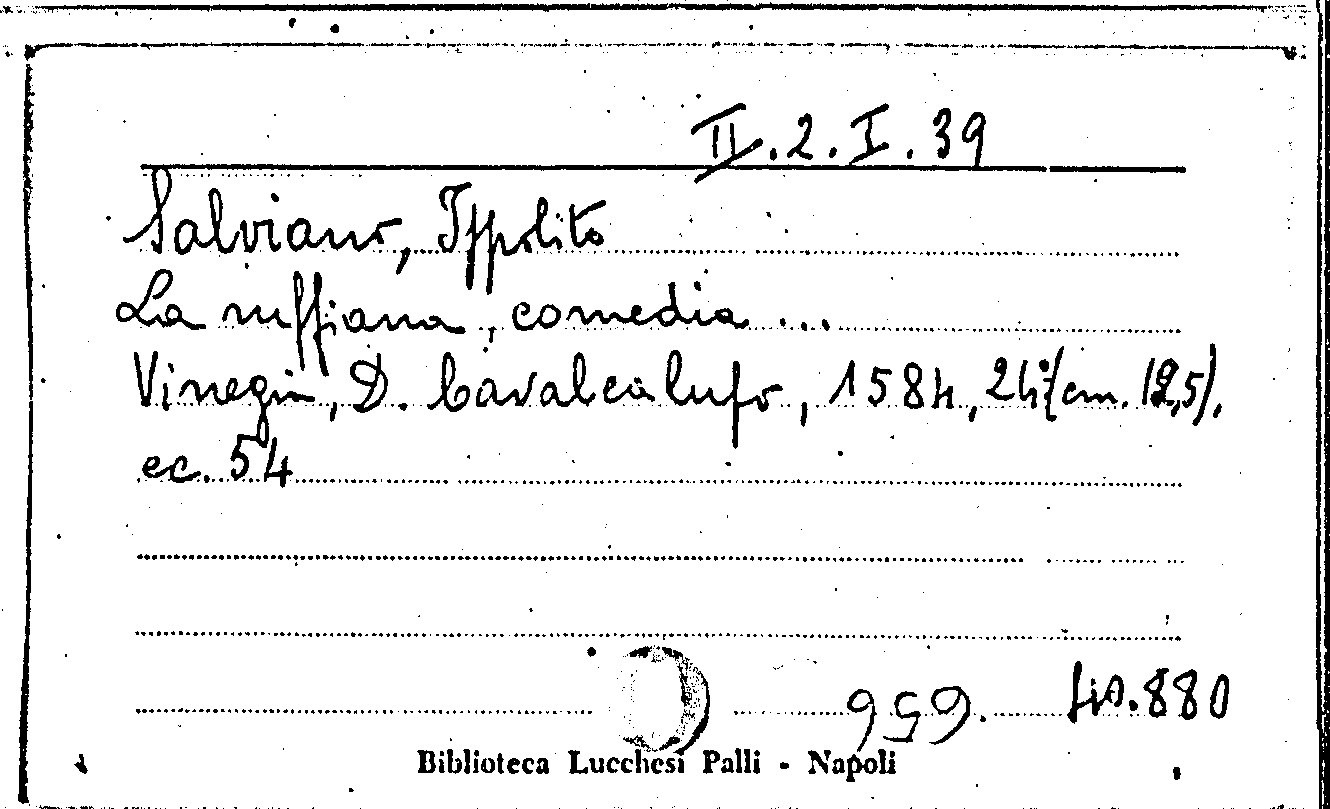 II.2.I.39
Salviano, Ippolito
La ruffiana, comedia ...
Vinegia, D. Cavalcalupo, 1584, 24°(cm. 12,5),
cc. 54
659. 40.880
Biblioteca Lucchesi Palli - Napoli